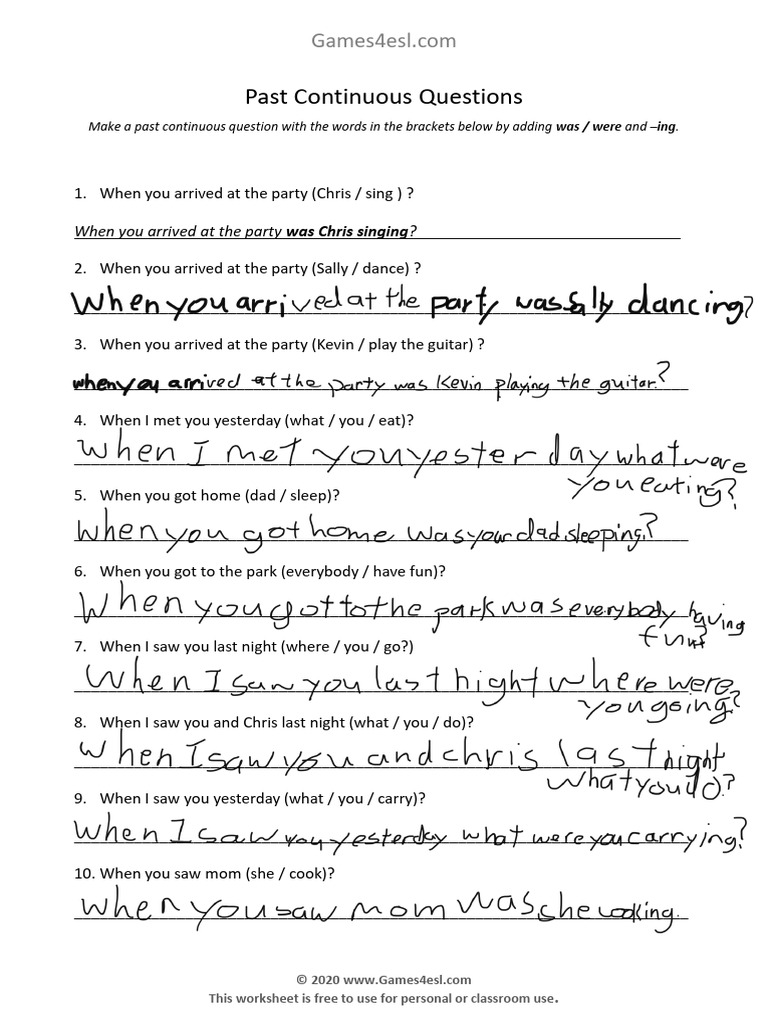 Games4esl.com
Past Continuous Questions
Make a past continuous question with the words in the brackets below by adding was / were and –ing.
1. When you arrived at the party (Chris / sing ) ?
When you arrived at the party was Chris singing?
2. When you arrived at the party (Sally / dance) ?
When you arrived at the party was Sally dancing?
3. When you arrived at the party (Kevin / play the guitar) ?
when you arrived at the party was Kevin playing the guitar?
4. When I met you yesterday (what / you / eat)?
When I met you yesterday what were
you eating?
5. When you got home (dad / sleep)?
When you got home was your dad sleeping?
6. When you got to the park (everybody / have fun)?
When you got to the park was everybody having
fun?
7. When I saw you last night (where / you / go?)
When I saw you last night where were
you going?
8. When I saw you and Chris last night (what / you / do)?
When I saw you and chris last night
what you do?
9. When I saw you yesterday (what / you / carry)?
When I saw you yesterday what were you carrying?
10. When you saw mom (she / cook)?
When you saw mom was she cooking.
© 2020 www.Games4esl.com
This worksheet is free to use for personal or classroom use.